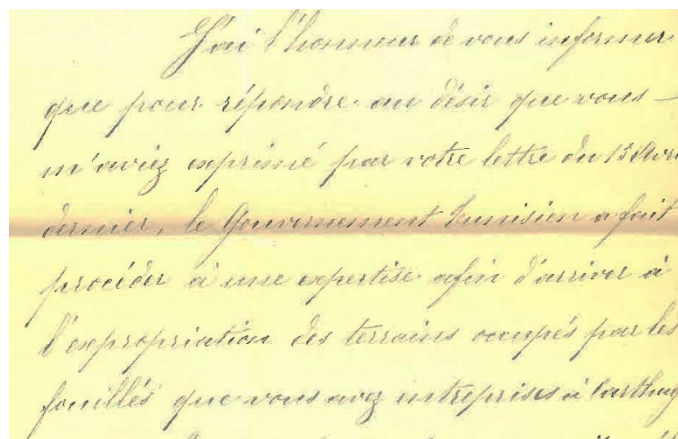 J'ai l'honneur de vous informer
que pour répondre au désir que vous —
m'aviez exprimé par votre lettre du 15 Avri
dernier, le Gouvernement Tunisien a fait
procéder à une expertise afin d'arriver à
l'expropriation des terrains occupés par les
fouilles que vous avez entreprises à Carthag